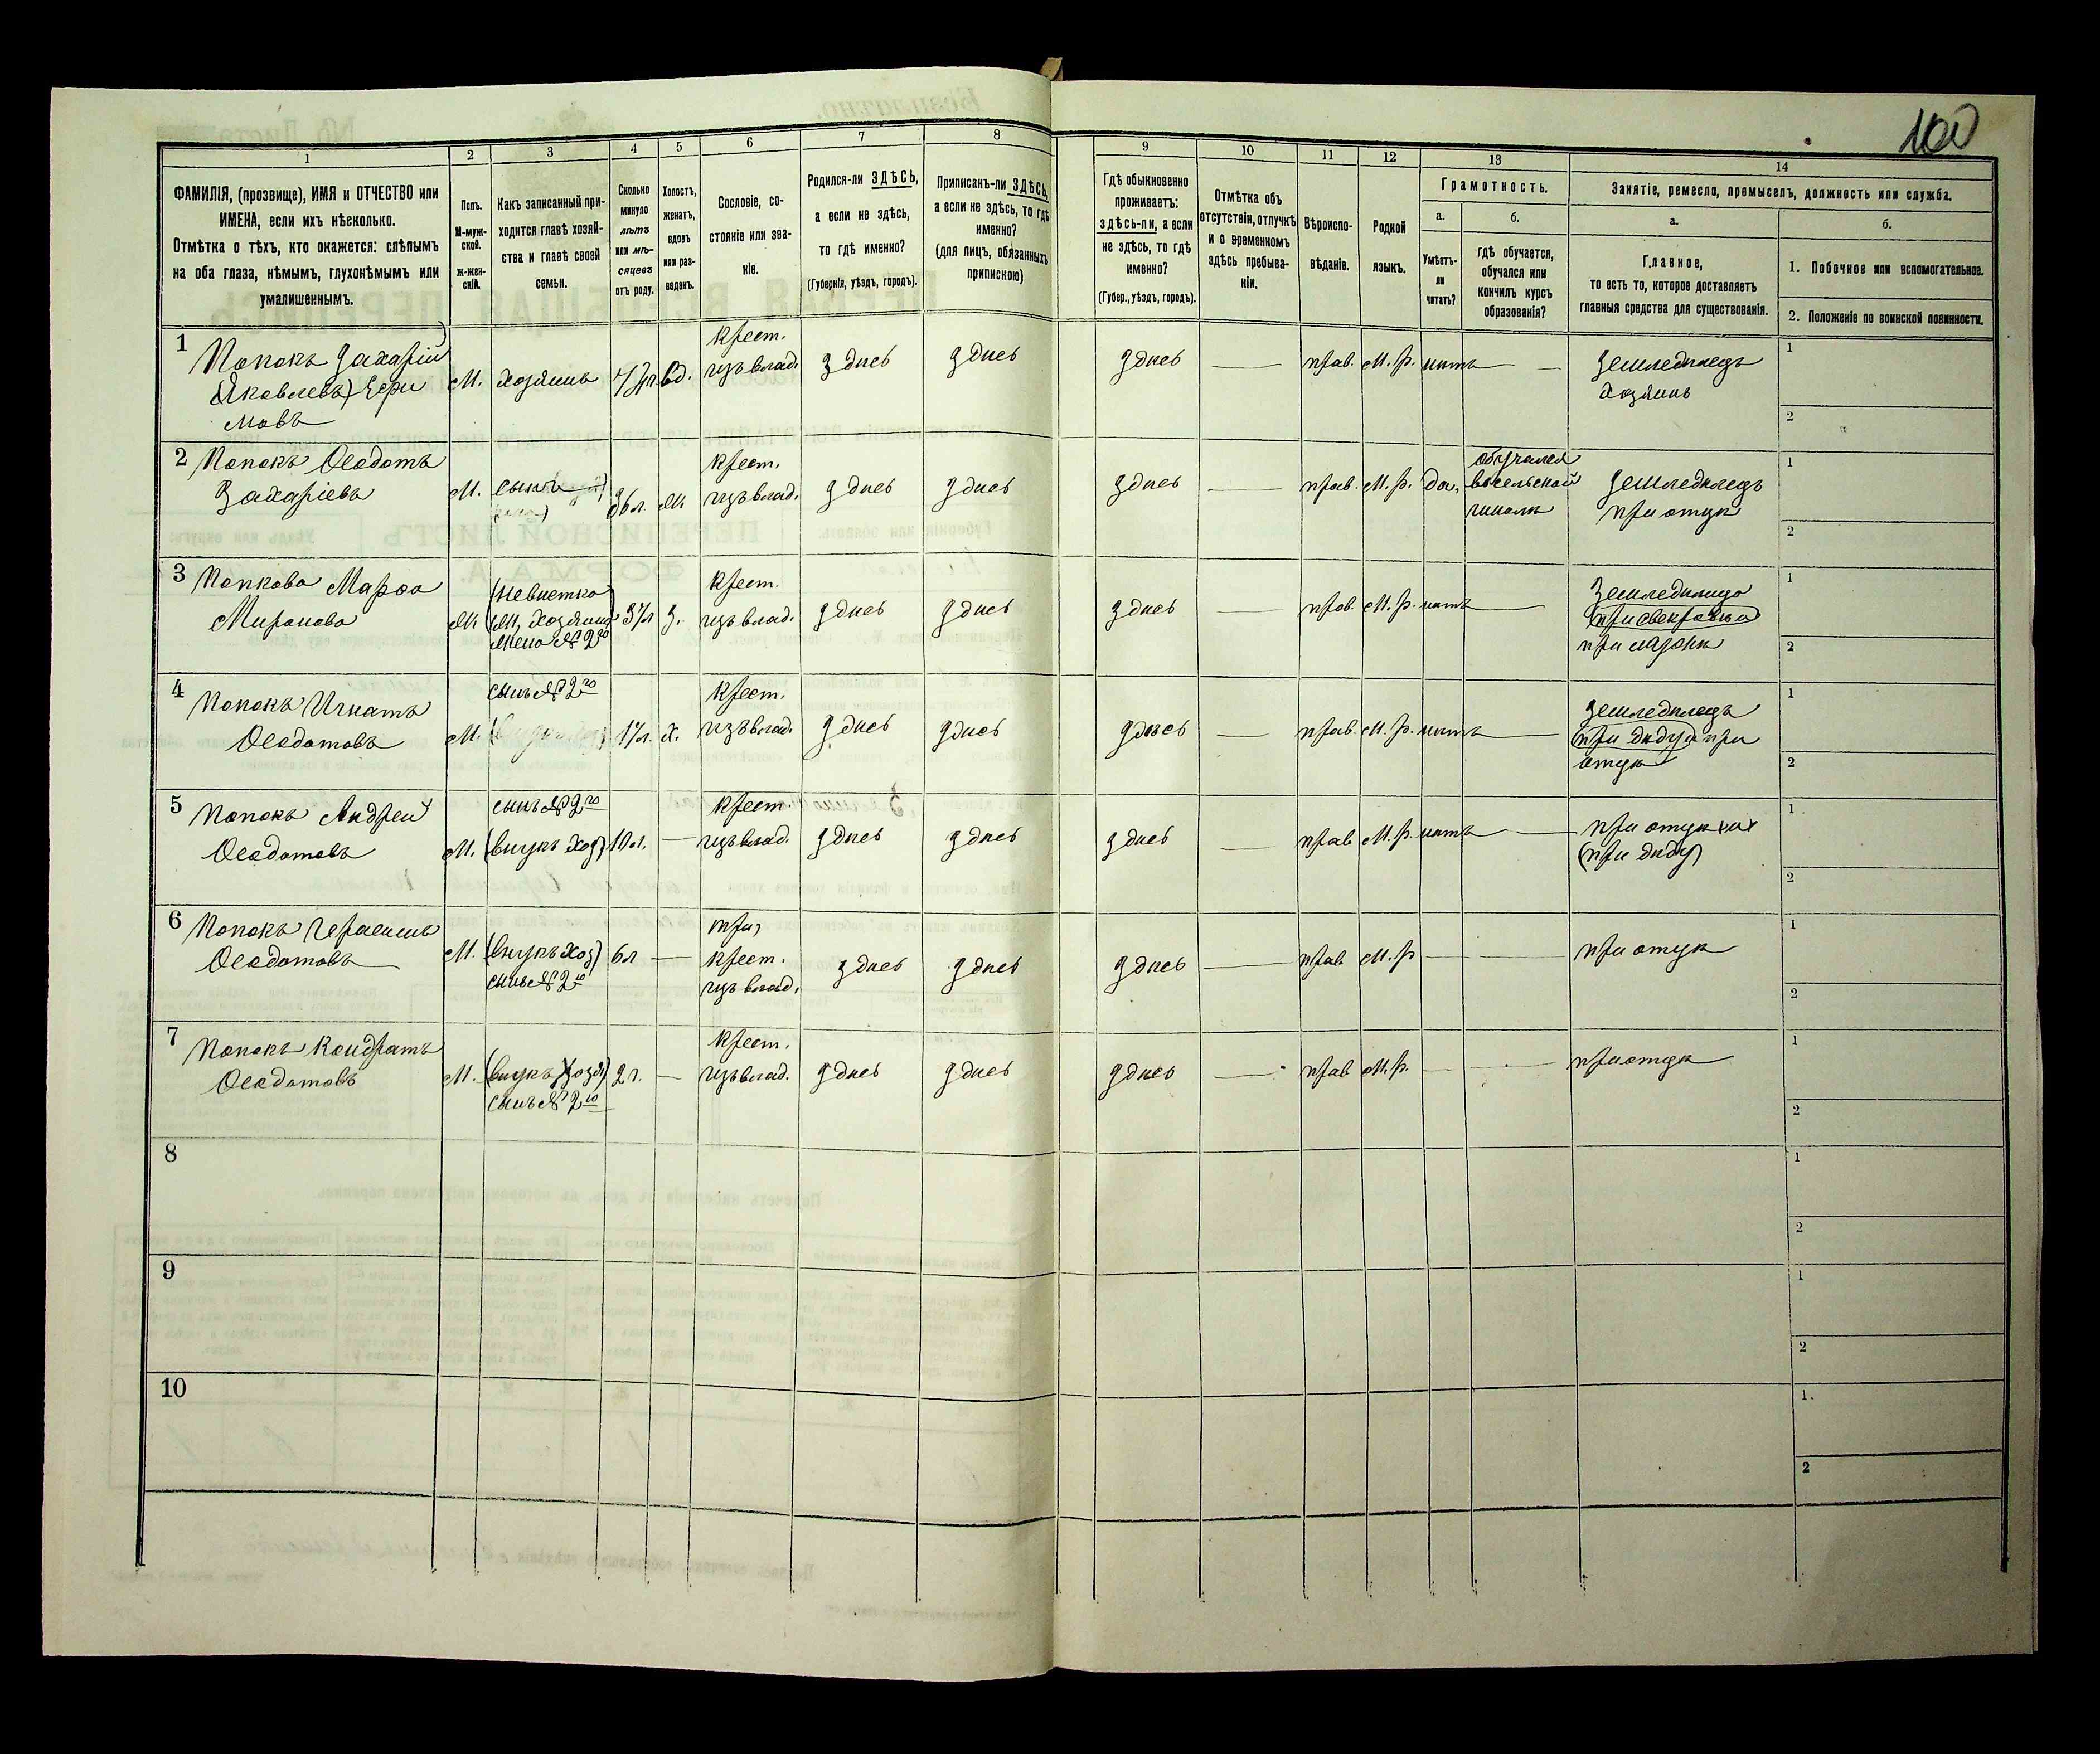 100
1
2
3
4
5
6
7
8
9
10
11
12
13
14
ФАМИЛІЯ, (прозвище), ИМЯ и ОТЧЕСТВО или
ИМЕНА, если ихъ нѣсколько.
Отмѣтка о тѣхъ, кто окажется: слѣпымъ
на оба глаза, нѣмымъ, глухонѣмымъ или
умалишеннымъ.
Полъ.
М-муж-
ской.
ж-жен-
скій.
Какъ записанный при-
ходится главѣ хозяй-
ства и главѣ своей
семьи.
Сколько
минуло
лѣтъ
или мѣ-
сяцевъ
отъ роду.
Холостъ,
женатъ,
вдовъ
или раз-
веденъ.
Сословіе, со-
стояніе или зва-
ніе.
Родился-ли ЗДѢСЬ,
а если не здѣсь,
то гдѣ именно?
(Губернія, уѣздъ, городъ).
Приписанъ-ли ЗДѢСЬ,
а если не здѣсь, то гдѣ
именно?
(для лицъ, обязанныхъ
припискою)
Гдѣ обыкновенно
проживаетъ:
здѣсь-ли, а если
не здѣсь, то гдѣ
именно?
(Губер., уѣздъ, городъ).
Отмѣтка объ
отсутствіи, отлучкѣ
и о временномъ
здѣсь пребыва-
ніи.
Вѣроиспо-
вѣданіе.
Родной
языкъ.
Грамотность.
а.
Умѣетъ-
ли
читать?
б.
гдѣ обучается,
обучался или
кончилъ курсъ
образованія?
Занятіе, ремесло, промыселъ, должность или служба.
а.
Главное,
то есть то, которое доставляетъ
главныя средства для существованія.
б.
1. Побочное или вспомогательное.
2. Положеніе по воинской повинности.
1
Попокъ Захарій
(Яковлевъ) Ефи
мовъ
М. хозяинъ вд.
крест.
изъ влад.
здѣсь здѣсь здѣсь — прав. М. р. нѣтъ —
земледѣлецъ
хозяинъ
1
2
2
Попокъ Ѳеодотъ
Захаріевъ
М. сынъ 36 л. ж.
крест.
изъ влад.
здѣсь здѣсь здѣсь — прав. М. р. да,
обучался
въ сельской
школѣ
земледѣлецъ
при отцѣ
1
2
3
Попкова Марѳа
Миронова
Ж
(невѣстка
хозяина)
жена № 2го
37 л з.
крест.
изъ влад.
здѣсь здѣсь здѣсь — прав. М. р. нѣтъ —
Земледѣлица
при мужѣ
1
2
4
Попокъ Игнатъ
Ѳеодотовъ
М.
сынъ № 2го
17 л. х.
крест.
изъ влад.
здѣсь здѣсь здѣсь — прав. М. р. нѣтъ —
земледѣлецъ
(при дѣду и при
отцѣ
1
2
5
Попокъ Андрей
Ѳеодотовъ
М.
сынъ № 2го
(внукъ хоз) 10 л. —
крест.
изъ влад.
здѣсь здѣсь здѣсь — прав М. р. нѣтъ —
при отцѣ
(при дѣду)
1
2
6
Попокъ Герасимъ
Ѳеодотовъ
М.
(внукъ хоз) 6 л —
сынъ № 2го
крест.
изъ влад.
здѣсь здѣсь здѣсь — прав М. р — —
при отцѣ
1
2
7
Попокъ Кондратъ
Ѳеодотовъ
М.
(внукъ хозя) 2 г. —
сынъ № 2го
крест.
изъ влад.
здѣсь здѣсь здѣсь — прав М. р. — —
при отцѣ
1
2
8
1
2
9
1
2
10
1.
2